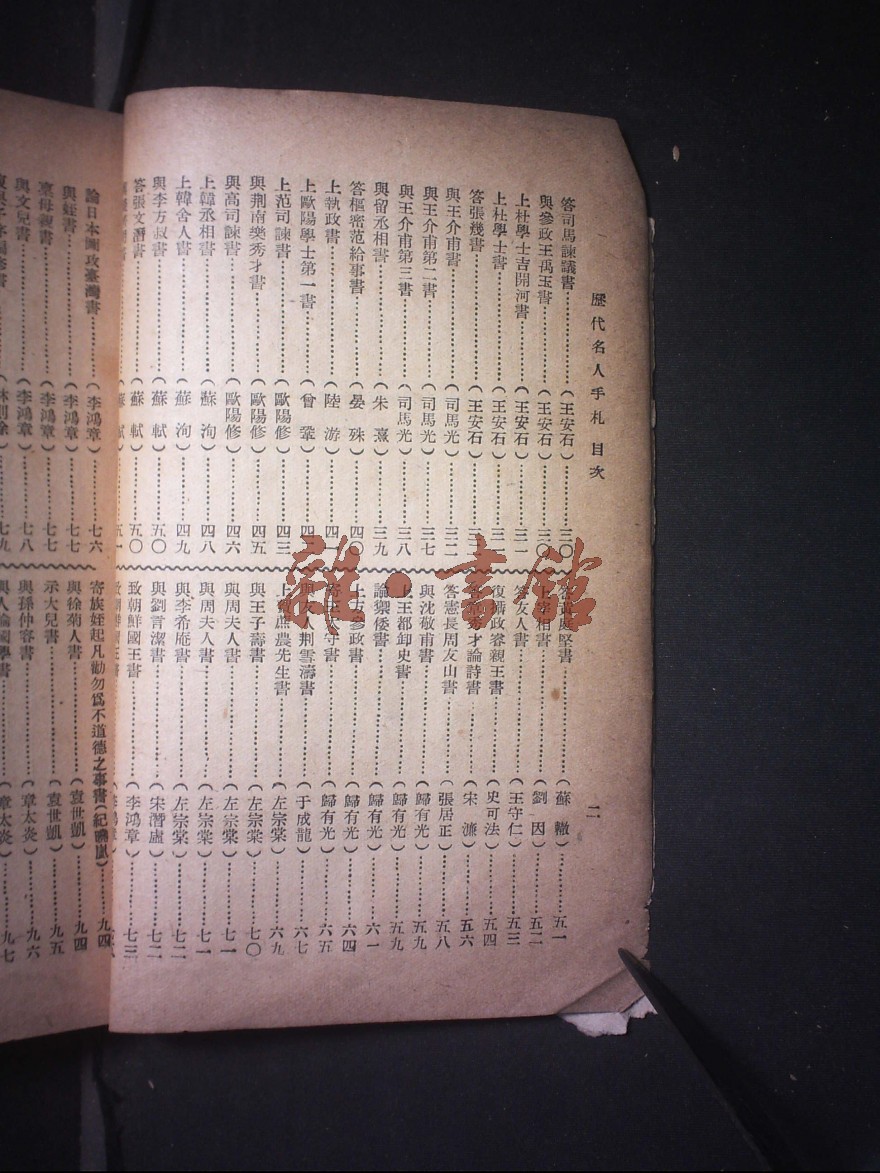 歷代名人手札 目次
二
答司馬諫議書………(王安石)………三〇
與參政王禹玉書………(王安石)………三〇
上杜學士言開河書………(王安石)………三一
上杜學士書………(王安石)………三一
答張幾書………(王安石)………三二
與王介甫書………(司馬光)………三二
與王介甫第二書………(司馬光)………三七
與王介甫第三書………(司馬光)………三八
與留丞相書………(朱熹)………三九
答樞密范給事書………(晏殊)………四〇
上執政書………(陸游)………四一
上歐陽學士第一書………(曾鞏)………四二
上范司諫書………(歐陽修)………四三
與荆南樂秀才書………(歐陽修)………四五
與高司諫書………(歐陽修)………四六
上韓丞相書………(蘇洵)………四八
上韓舍人書………(蘇洵)………四九
與李方叔書………(蘇軾)………五〇
答張文潛書………(蘇軾)………五〇
書………(蘇軾)………五一
答黃庭堅書………(蘇轍)………五一
上宰相書………(劉因)………五二
答友人書………(王守仁)………五三
復攝政睿親王書………(史可法)………五四
秀才論詩書………(宋濂)………五六
答憲長周友山書………(張居正)………五八
與沈敬甫書………(歸有光)………五九
上王都御史書………(歸有光)………五九
論禦倭書………(歸有光)………六一
上方參政書………(歸有光)………六四
寄王太守書………(歸有光)………六五
與友人荆雪濤書………(于成龍)………六七
上賀蔗農先生書………(左宗棠)………六九
與王子壽書………(左宗棠)………七〇
與周夫人書………(左宗棠)………七一
與周夫人書………(左宗棠)………七一
與李希庵書………(左宗棠)………七二
與劉言潔書………(宋潛虛)………七二
致朝鮮國王書………(李鴻章)………七三
論日本圖攻臺灣書………(李鴻章)………七六
與姪書………(李鴻章)………七七
稟母親書………(李鴻章)………七七
與文兒書………(李鴻章)………七八
書………(林則徐)………七九
寄族姪起凡勸勿爲不道德之事書(紀曉嵐)………九四
與徐菊人書………(袁世凱)………九四
示大兒書………(袁世凱)………九五
與孫仲容書………(章太炎)………九六
與人論國學書………(章太炎)………九七
雜·書館